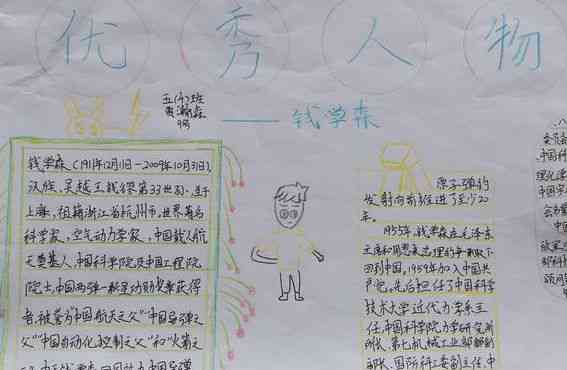 优秀人物
五(4)班
黄瀚森
9号
——钱学森
钱学森(1911年12月11日-2009年10月31日),
汉族,吴越王钱镠第33世孙,生于
上海,祖籍浙江省杭州市,世界著名
科学家,空气动力学家,中国载人航
天奠基人,中国科学院及中国工程院
院士,中国两弹一星功勋奖章获得
者,被誉为"中国航天之父""中国导弹之
父""中国自动化控制之父"和"火箭之
原子弹的
发射向前推进了至少20
年。
1955年,钱学森在毛泽东
主席和周恩来总理的争取下
回到中国,1959年加入中国共
产党,先后担任了中国科学
技术大学近代力学系主
任,中国科学院力学研究所
所长、第七机械工业部副部
部长、国防科工委副主任、中